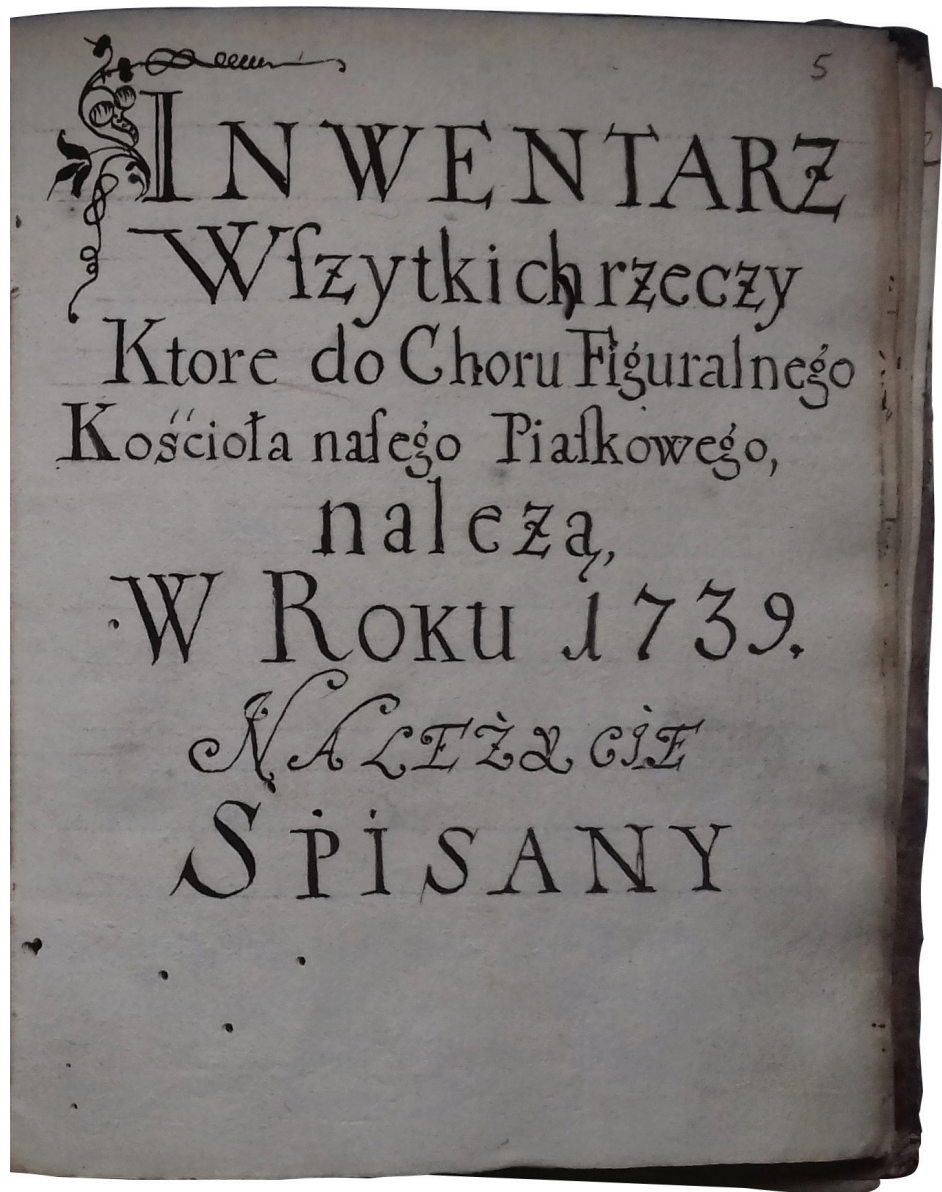 5
INWENTARZ
Wſzytkich rzeczy
Ktore do Choru Figuralnego
Kościoła naſego Piaſkowego,
nalezą,
W ROKU 1739.
NALEŻĄCIE
SPISANY